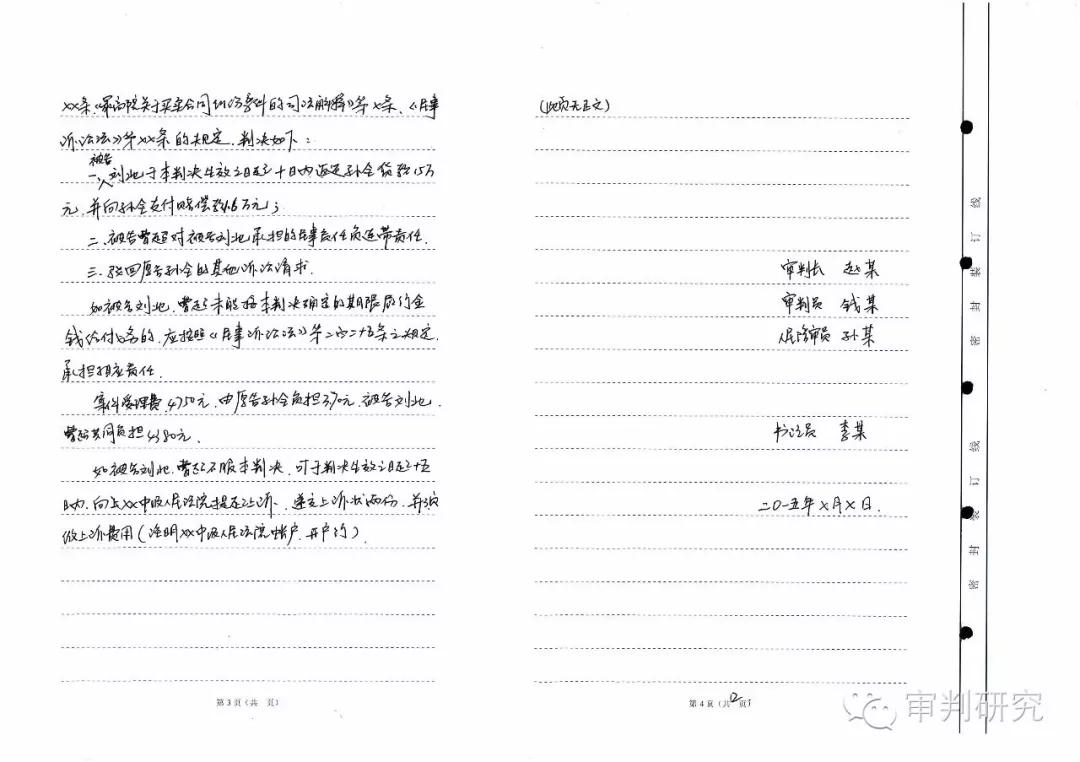 XX条、《最高院关于买卖合同纠纷案件的司法解释》第X条、《民事
诉讼法》第XX条的规定，判决如下：
被告
一、刘北于本判决生效之日起三十日内返还孙全货款15万
元，并向孙全支付赔偿款1.6万元；
二、被告曹超对被告刘北承担的民事责任负连带责任．
三、驳回原告孙全的其他诉讼请求．
如被告刘北、曹超未能按本判决确定的期限履行金
钱给付义务的，应按照《民事诉讼法》第二百二十五条之规定，
承担相应责任．
案件受理费4750元，由原告孙全负担370元，被告刘北、
曹超共同负担4380元．
如被告刘北、曹超不服本判决，可于判决生效之日起十五
日内，向上XX中级人民法院提起上诉，递交上诉状两份，并预
缴上诉费用（注明XX中级人民法院帐户、开户行）．
第 3 页（共 页）
（此页无正文）
审判长 赵某
审判员 钱某
人民陪审员 孙某
书记员 李某
二0一五年X月X日．
第 4 页（共 12 页）
密 封 装 订 线
密 封 装 订 线
审判研究